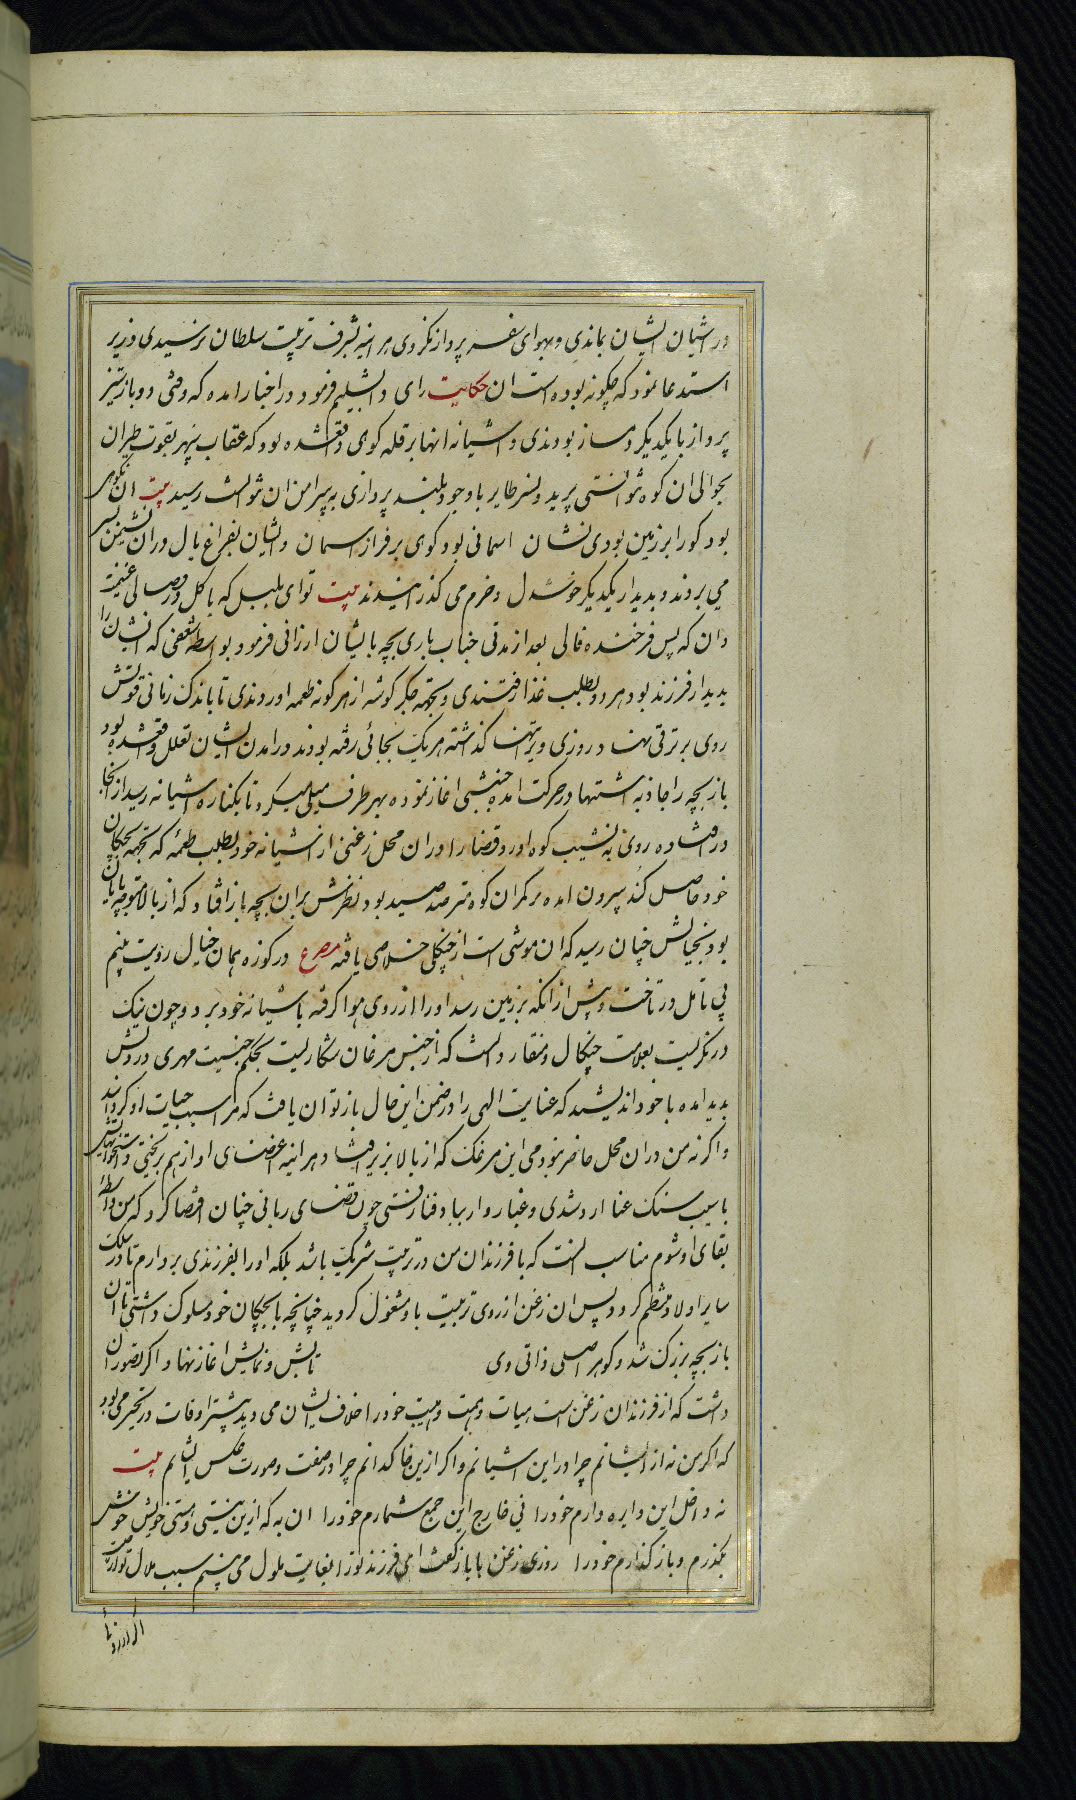 در اشیان ایشان بماندی و بهوای سفر پرواز نکردی هر اینه بشرف تربیت سلطان نرسیدی وزیر
استدعا نمود که چگونه بوده است ان حکایت رای دابشلیم فرمود در اخبار امده که وقتی دو باز تیز
پرواز با یکدیکر دمساز بودندی و اشیانه انها بر قله کوی واقع شده بود که عقاب سپهر بقوت طیران
بحوالی ان کوه نتوانستی پرید و نسر طایر باوجود بلند پروازی به پیرامن ان نتوانست رسید بیت ان نکوهی
بود کو را بر زمین بودی نشان اسمانی بود کوی بر فراز اسمان و ایشان بفراغ بال دران نشیمن بسر
می بردند و بدیدار یکدیکر خوشدل و خرم می کذرانیدند بیت توای بلبل که با کل در وصالی غنیمت
دان که بس فرخنده فالی بعد از مدتی جناب باری بچه بایشان ارزانی فرمود و بواسطه شغفی که ایشان را
بدیدار فرزند بود هر دو بطلب غذا رفتندی و بجهة جکر کوشه از هر کونه طعمه اوردندی تا باندک زمانی قوتش
روی بر ترقی نهاد روزی ویرا تنها کذاشته هر یک بجائی رفته بودند و در امدن ایشان تعلل واقع شده بود
باز بچه را جاذبه اشتها در حرکت امده جنبشی اغاز نموده بهر طرف میلی میکرد تا بکناره اشیانه رسید از انجا
در افتاده روی به نشیب کوه اورد قضا را دران محل زغنی از اشیانه خود بطلب طعمه که بجهة بچکان
خود حاصل کند بیرون امده بر کمر ان کوه مترصد صید بود نظرش بران بچه باز افتاد که از بالا متوجه پایان
بود بخیالش چنان رسید که ان موشی است از چنکلی خلاصی یافته مصرع در کوزه همان خیال رویت بینم
بی تامل در تاخت و پیش از انکه بر زمین رسد او را از روی هوا کرفته باشیانه خود برد و چون نیک
در نکریست بعلامت چنکال و منقار دانست که از جنس مرغان شکاریست بحکم جنسیت مهری در دلش
پدید امده با خود اندیشید که عنایت الهی را در ضمن این حال باز توان یافت که مرا سبب حیات او کردانید
و اکر نه من دران محل حاضر نبودمی این مرغک که از بالا بزیر افتاد هر اینه اعضای او از هم بریختی و استخوانهایش
باسیب سنک عنا ارد شدی و غبار وار بباد فنا رفتی چون قضای ربانی چنان اقتضا کرد که من واسطه
بقای او شوم مناسب انست که با فرزندان من در تربیت شریک باشد بلکه او را بفرزندی بردارم تا در سلک
سایر اولاد منتظم کردد پس ان زغن از روی تربیت باو مشغول کردید چنانچه با بچکان خود سلوک داشتی تا ان
باز بچه بزرک شد و کوهر اصلی ذاتی وی تابش و نمایش اغاز نهاد اکر بتصور ان
داشت که از فرزندان زغن است هیات و همت و هیبت خود را خلاف ایشان می دید بیشتر اوقات در تحیر می بود
که اکر من نه از ایشانم چرا در این اشیانم و اکر ازین خاکدانم چرا در صفت و صورت عکس ایشانم بیت
نه داخل این دایره دارم خود را نی خارج این جمع شمارم خود را ان به که ازین نیستی و هستی خویش خوش
بکذرم و باز کذارم خود را روزی زغن با باز کفت ای فرزند ترا بغایت ملول می بینم سبب ملال تو از